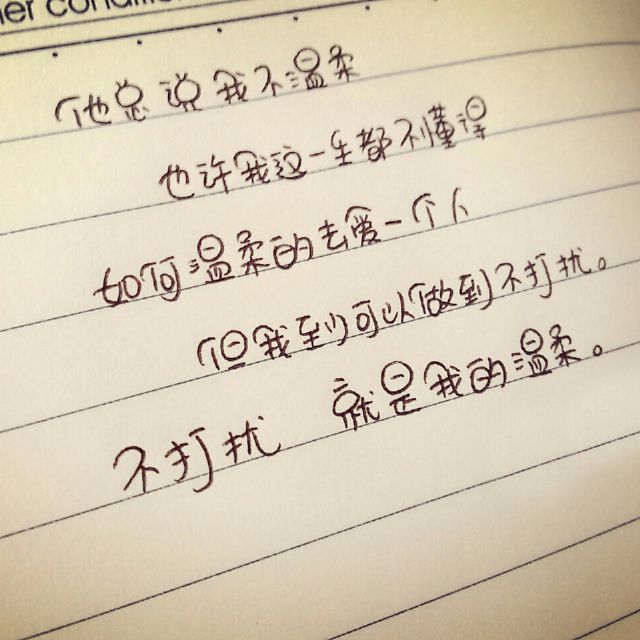 her condition
他总说我不温柔
也许我这一生都不懂得
如何温柔的去爱一个人
但我至少可以做到不打扰。
不打扰 就是我的温柔。